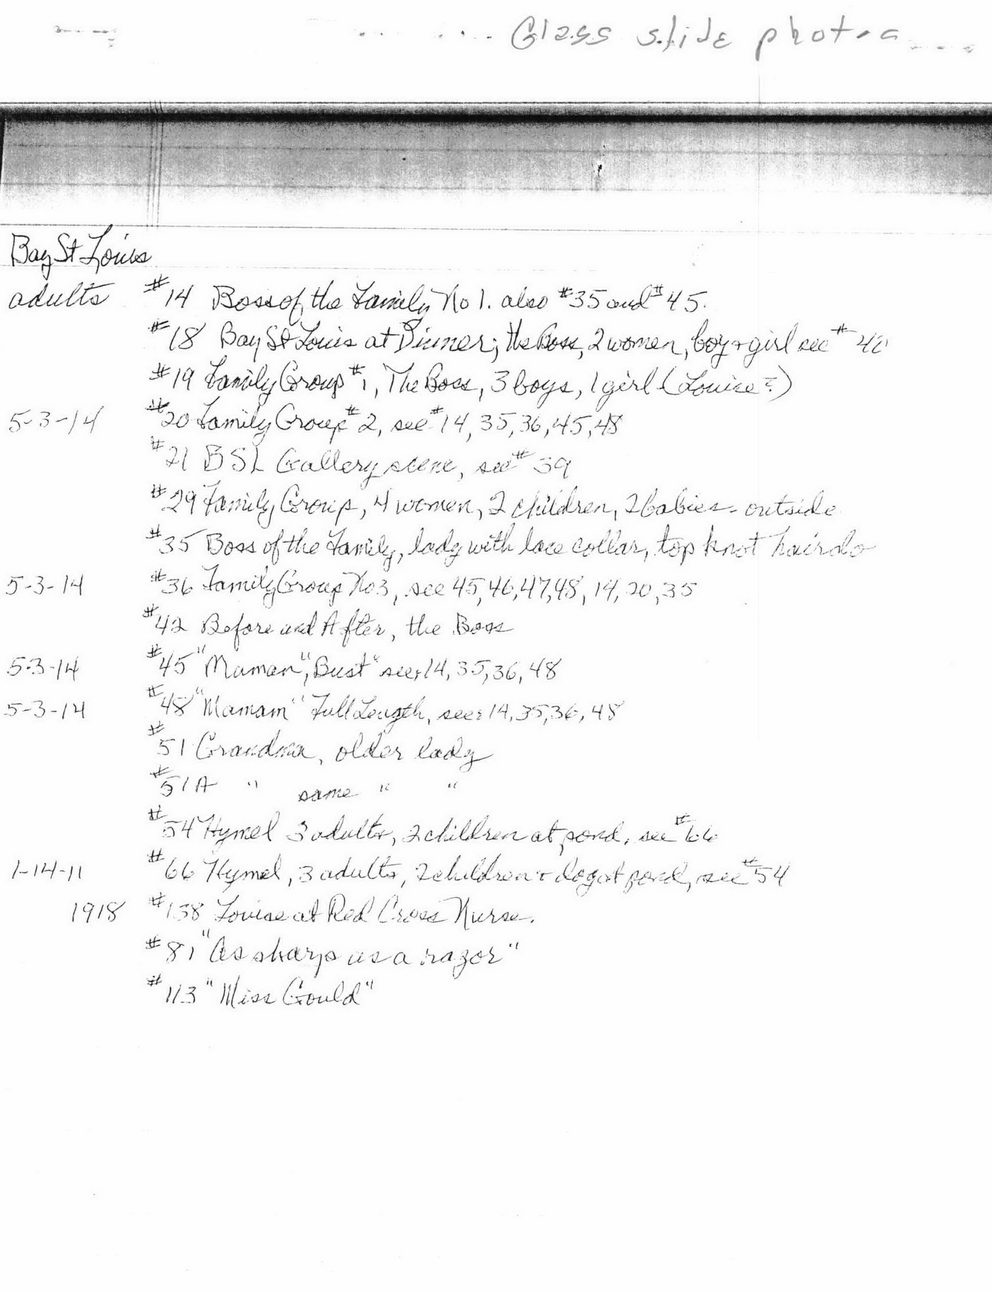 Glass slide photo
Bay St Louis
adults #14 Boss of the Family No 1. also #35 and #45.
#18 Bay St Louis at Dinner; the Boss, 2 women, boy + girl see #42
#19 Family Group #1, The Boss, 3 boys, 1 girl (Louise?)
5-3-14 #20 Family Group #2, see #14, 35, 36, 45, 48
#21 BSL Gallery scene, see #39
#29 Family Group, 4 women, 2 children, 2 babies - outside
#35 Boss of the Family, lady with lace collar, top knot hairdo
5-3-14 #36 Family Group No 3, see 45, 46, 47, 48, 14, 20, 35
#42 Before and After, the Boss
5-3-14 #45 "Maman", Bust" see: 14, 35, 36, 48
5-3-14 #48 "Mamam" Full Length, see: 14, 35, 36, 48
#51 Grandma, older lady
#51A " same " "
#54 Hymel 3 adults, 2 children at pond, see #66
1-14-11 #66 Hymel, 3 adults, 2 children + dog at pond, see #54
1918 #138 Louise at Red Cross Nurse.
#81 "As sharp as a razor"
#113 "Miss Gould"